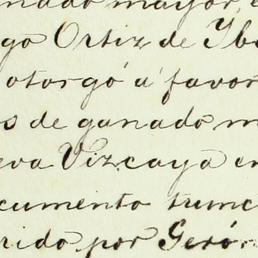 nado mayor, e
go Ortiz, de Iba
otorgó á favor
s de ganado m
eva Vizcaya en
cumento trunc
rido por Geró